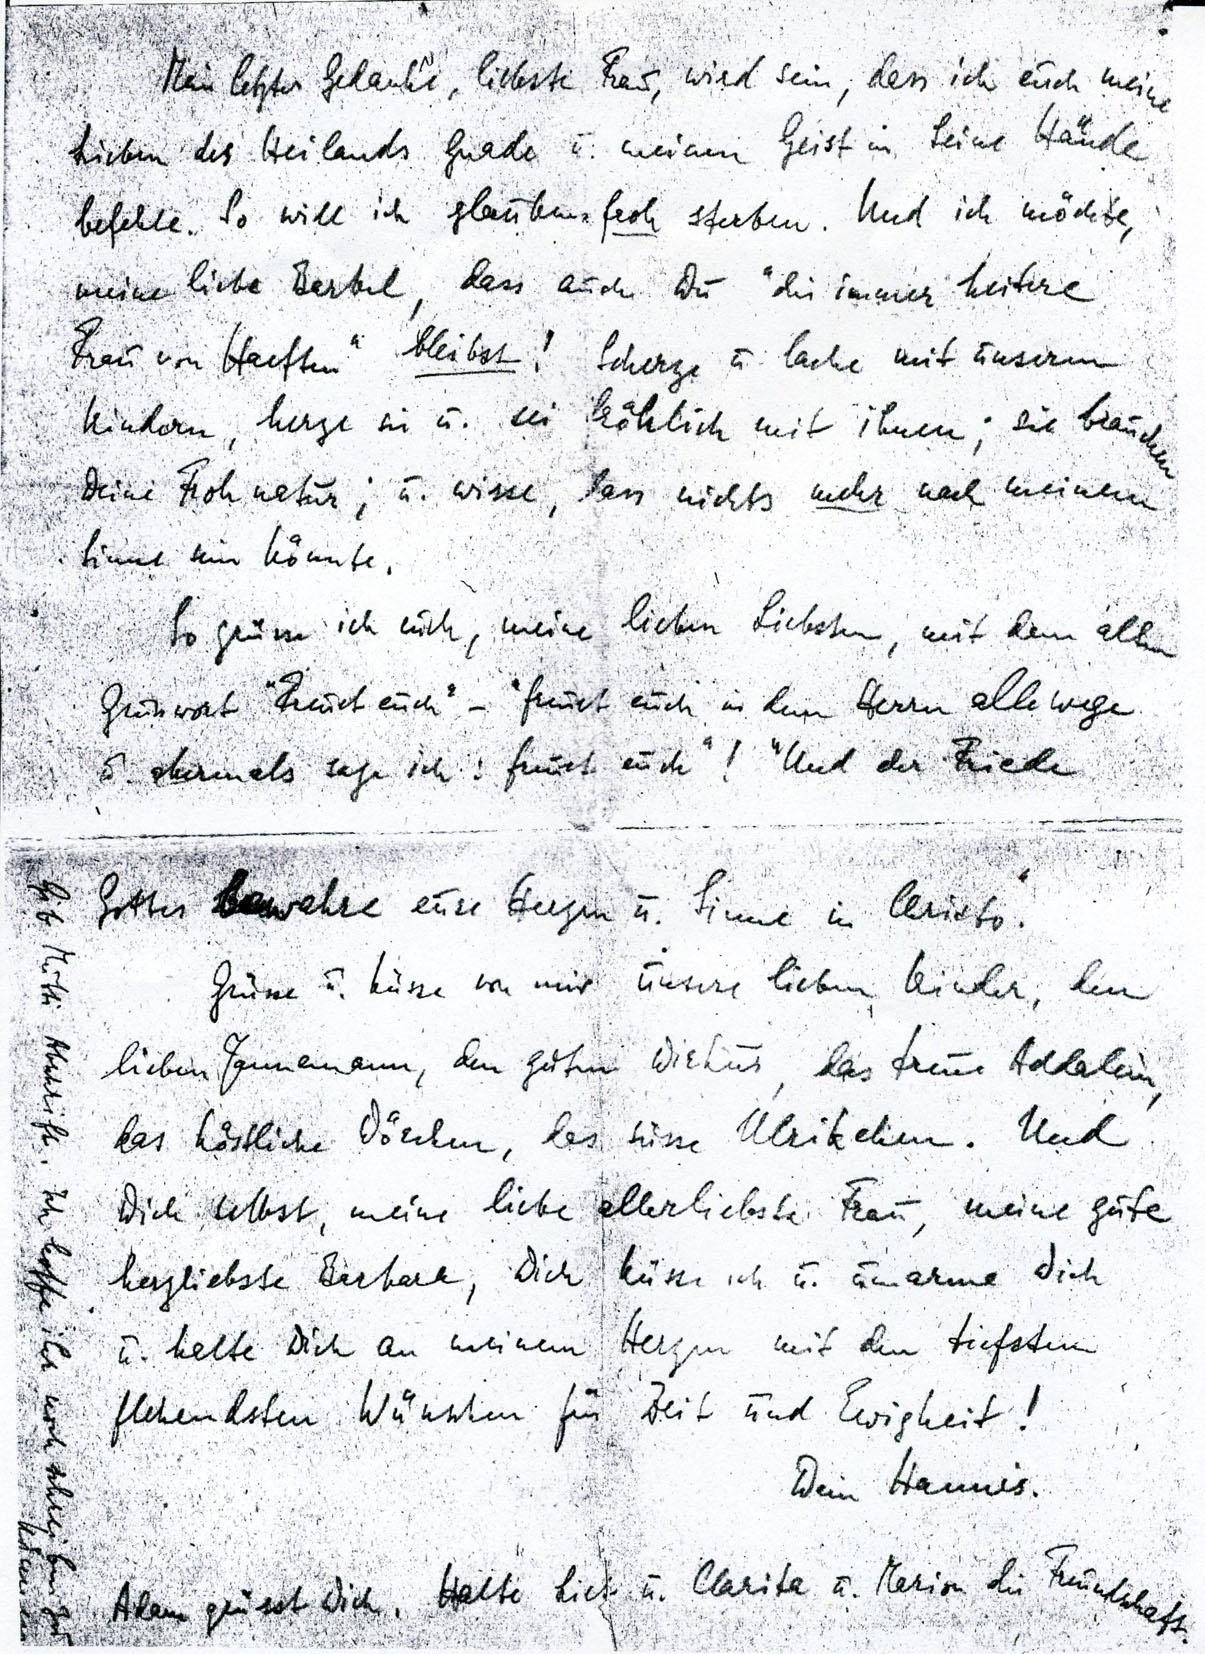 Mein letzter Gedanke, liebste Frau, wird sein, dass ich euch meine
Lieben des Heilands Gnade u. meinen Geist in Seine Hände
befehle. So will ich glaubensfroh sterben. Und ich möchte,
meine liebe Barbel, dass auch Du "die immer heitere
Frau von Haeften" bleibst! Scherze u lache mit unseren
Kindern, herze sie u. sei fröhlich mit ihnen; sie brauchen
Deine Frohnatur; u. wisse, dass nichts mehr nach meinem
Sinne sein könnte.
So grüsse ich euch, meine lieben Liebsten, mit dem alten
Grusswort "Freut euch" – "freut euch in dem Herrn allewege
u. abermals sage ich: freut euch"! "Und der Friede
Gottes bewahre eure Herzen u. Sinne in Christo."
Grüsse u. küsse von mir unsere lieben Kinder, den
lieben Jannemann, den guten Dirkus, das treue Addalein,
das köstliche Dörchen, das süsse Ulrikchen. Und
Dich selbst, meine liebe allerliebste Frau, meine gute
herzliebste Barbara, Dich küsse ich u. umarme Dich
u. halte Dich an meinem Herzen mit den tiefsten
flehendsten Wünschen für Zeit und Ewigkeit!
Dein Hannis.
Adam grüsst Dich. Halte Du u. Clarita u. Marion die Freundschaft.
Gibe Mutti Abschrift. Ich hoffe ihr noch schreiben zu
können